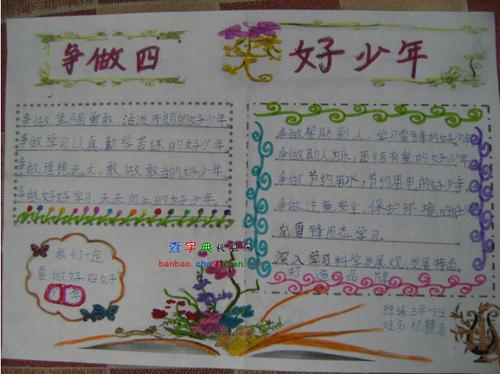 争做四好少年
争做坚强勇敢、活泼开朗的好少年
争做学习认真勤学苦练的好少年
争做理想远大,敢做敢当的好少年
争做好好学习,天天向上的好少年
我们一定
要做好四好
少年
争做帮助别人,学习雷锋的好少年
争做助人为乐,团结有爱的好少年
争做节约用水,节约用电的好少年
争做注意安全,保护环境的好少年
向雷锋同志学习
深入学习科学发展观,发展特点
打造品牌
查字典
banbao.chazidian.com
班级:三年一班
姓名: